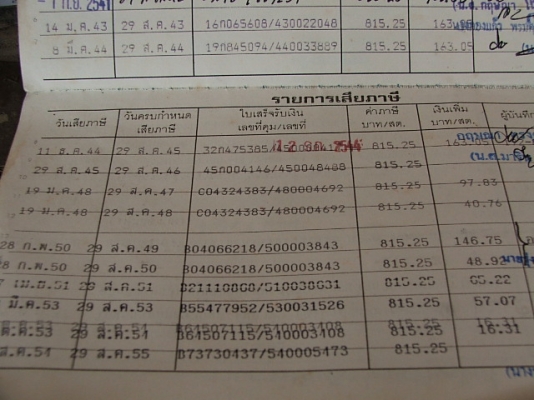 14 ม.ค.43 29 ส.ค.43 16ก065608/430022048 815.25
8 มี.ค.44 29 ส.ค.44 19ก845094/440033889 815.25 163.05
รายการเสียภาษี
วันเสียภาษี วันครบกำหนด ใบเสร็จรับเงิน ค่าภาษี เงินเพิ่ม
เสียภาษี เลขที่คุม/เลขที่ บาท/สต. บาท/สต.
11 ธ.ค.44 29 ส.ค.45 32ก475385/ 815.25
29 ส.ค.45 29 ส.ค.46 45ก004146/450048488 815.25
19 ม.ค.48 29 ส.ค.47 C04324383/480004692 815.25 97.83
19 ม.ค.48 29 ส.ค.48 C04324383/480004692 815.25 40.76
28 ก.พ.50 29 ส.ค.49 B04066218/500003843 815.25 146.75
28 ก.พ.50 29 ส.ค.50 B04066218/500003843 815.25 48.92
เม.ย.51 29 ส.ค.51 815.25 65.22
มี.ค.53 29 ส.ค.53 B55477952/530031526 815.25 57.07
ค.53 29 ส.ค.54 B64507115/540003408 815.25 16.31
ส.ค.54 29 ส.ค.55 B73730437/540005473 815.25